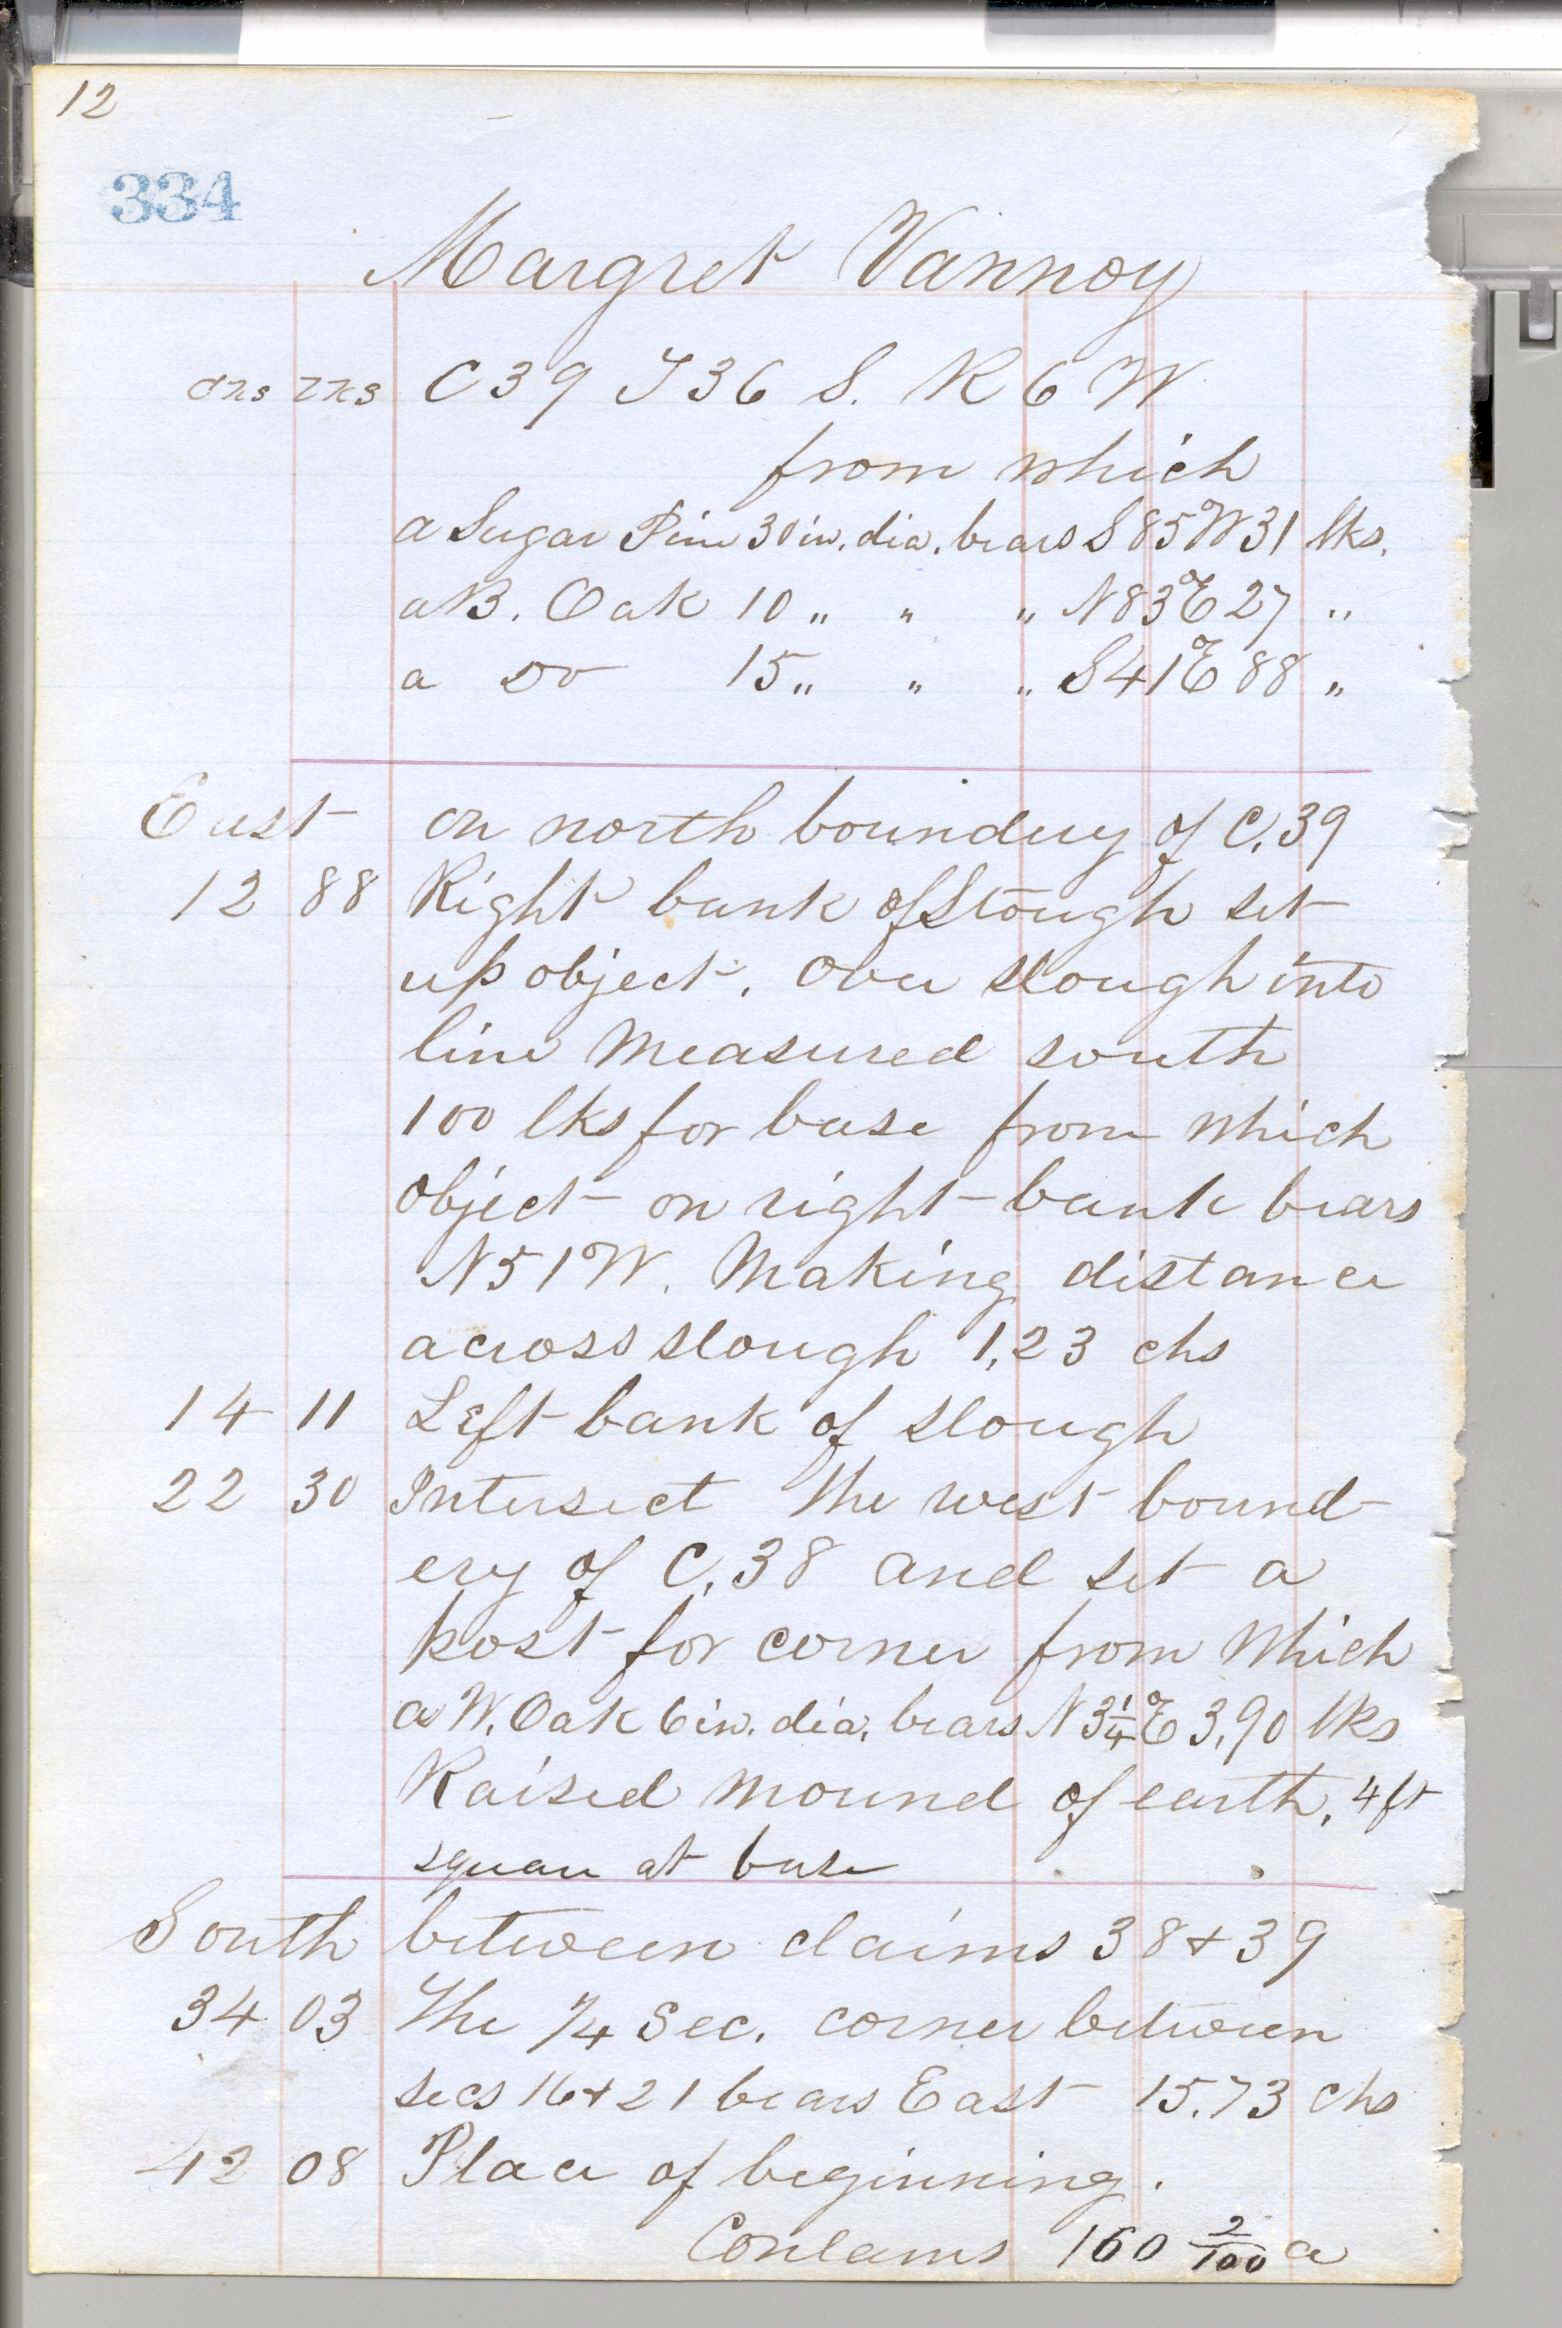 12
334
Margret Vannoy
chs lks C39 T36 S. R6W
from which
a Sugar Pine 30 in. dia. bears S85°W 31 lks.
a B. Oak 10 „ „ „ N83°E 27 „
a Do 15 „ „ „ S41°E 88 „
East on north boundry of C.39
12 88 Right bank of Slough set
up object. Over slough into
line Measured south
100 lks for base from which
object on right bank bears
N51W. Making distance
across slough 1,23 chs
14 11 Left bank of slough
22 30 Intersect the west bound-
ery of C.38 and set a
post for corner from which
a W. Oak 6 in. dia. bears N3¼°E 3,90 lks
Raised mound of earth, 4 ft
square at base
South between claims 38 & 39
34 03 The ¼ Sec. corner between
secs 16 & 21 bears East 15.73 chs
42 08 Place of beginning.
Contains 160 2/100 a